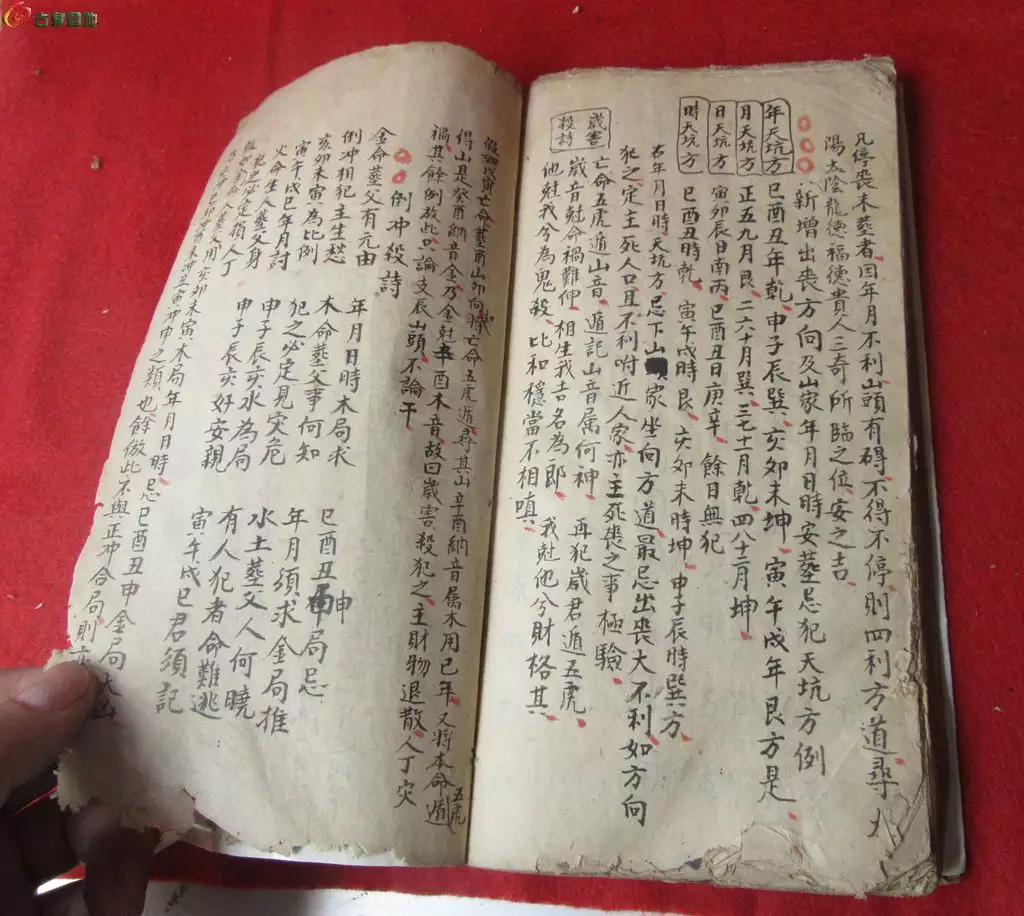 古泉園地
凡停喪未葬者因年月不利山頭有碍不得不停則四利方道尋
陽太陰龍德福德貴人三奇所臨之位安之吉
新增出喪方向及山家年月日時安葬忌犯天坑方例
年天坑方 巳酉丑年乾 申子辰巽 亥卯未坤 寅午戌年艮方是
月天坑方 正五九月艮 二六十月巽 三七十一月乾 四八十二月坤
日天坑方 寅卯辰日南丙 巳酉丑日庚辛 餘日無犯
時天坑方 巳酉丑時乾 寅午戌時艮 亥卯未時坤 申子辰時巽方
右年月日時天坑方忌下山家坐向方道最忌出喪大不利如方向
犯之定主死人口且不利附近人家亦主死喪之事極驗
歲害殺詩
亡命五虎遁山音 遁記山音属何神 再犯歲君遁五虎
歲音尅命禍難伸 相生我吉名為郎 我尅他兮財格其
他尅我兮為鬼殺 比和穩當不相嗔
假如戊寅亡命葬酉山卯向將亡命五虎遁尋其山辛酉納音属木用巳年又將本命遁五虎
得山是癸酉納音金乃金尅辛酉木音故曰歲害殺犯之主財物退散人丁灾
禍其餘例放此只論支辰山頭不論干
倒冲殺詩
金命葬父有元由 年月日時木局求 巳酉丑申局忌
倒冲相犯主生愁 木命葬父事何知 年月須求金局推
亥卯未寅為比例 犯之必定見灾危 水土葬父人何曉
寅午戌巳年月討 申子辰亥水為局 有人犯者命難逃
火命生人葬父身 申子辰亥好安親 寅午戌巳君須記
犯之必定損人丁
假如金命人葬父用亥卯未寅木局年月日時忌巳酉丑申金局大凶
冲巳卯冲酉未冲丑寅冲申之類也餘倣此不與正冲合局則亦